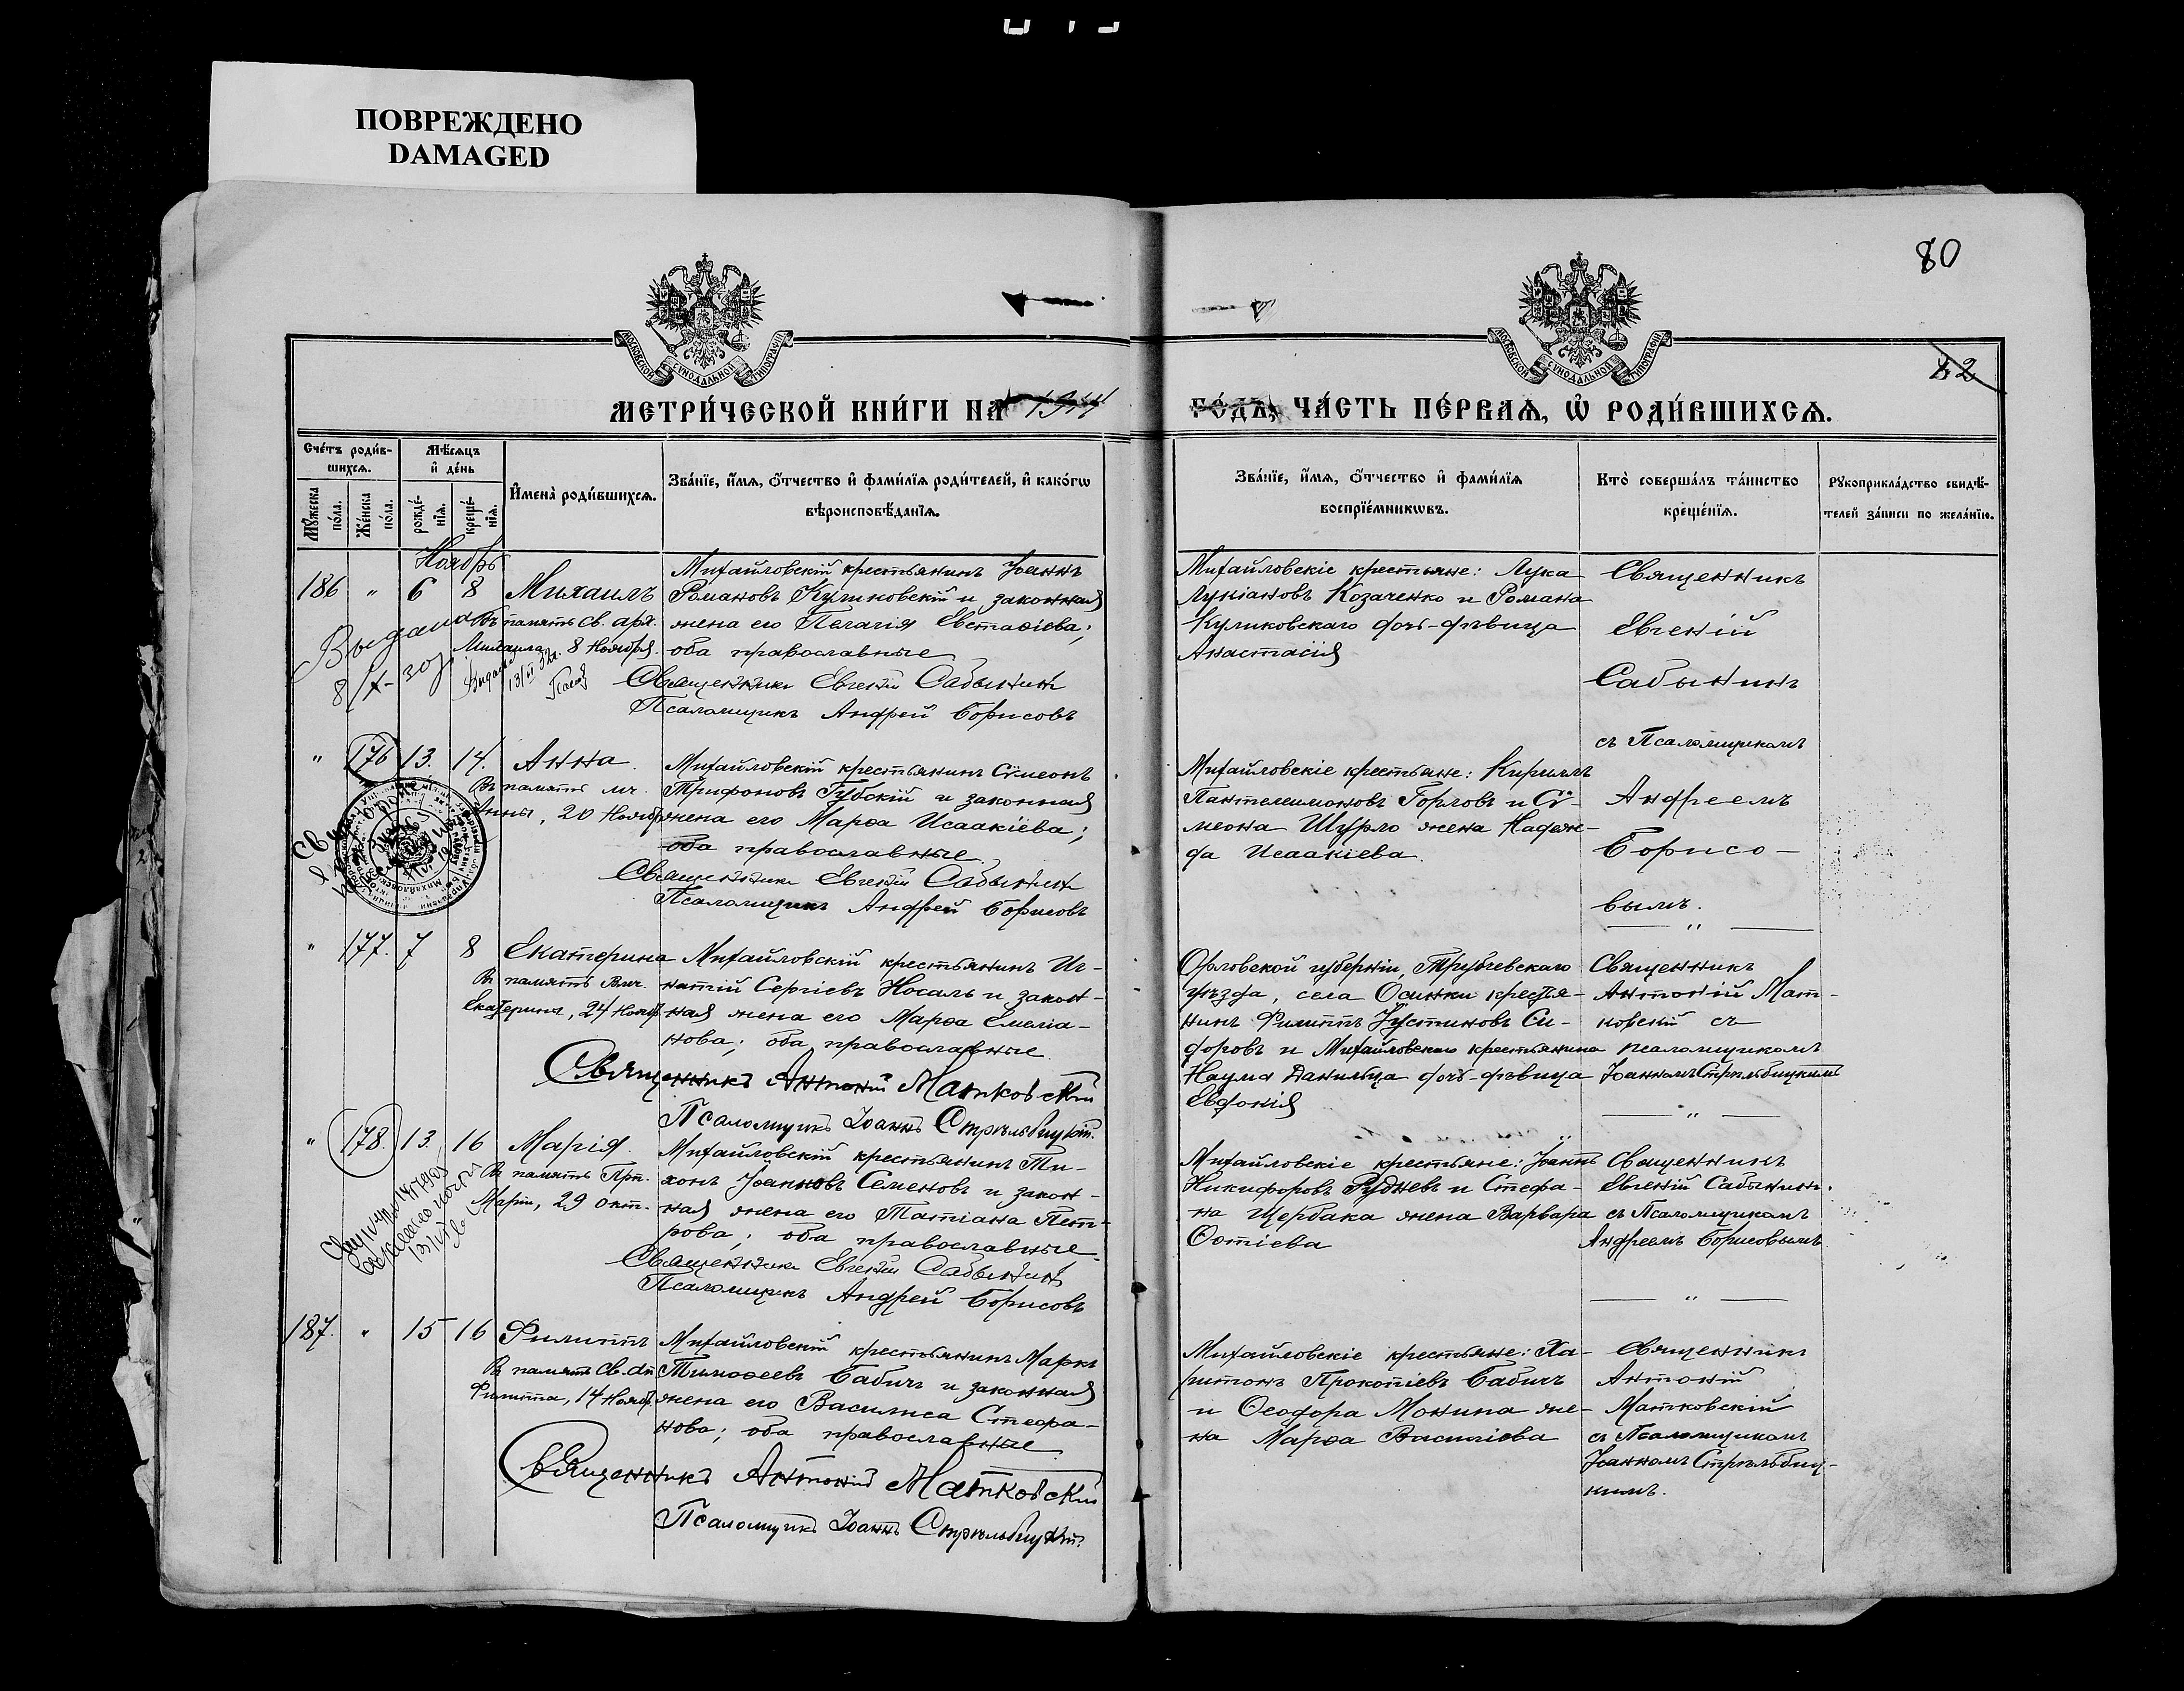 ПОВРЕЖДЕНО
DAMAGED
80
42
МОСКОВСКОЙ СУНОДАЛЬНОЙ ТИПОГРАФІИ
МОСКОВСКОЙ СУНОДАЛЬНОЙ ТИПОГРАФІИ
МЕТРИ́ЧЕСКОЙ КНИ́ГИ НА 1914
ГО́ДЪ, ЧА́СТЬ ПЕ́РВАѦ, Ѡ҆ РОДИ́ВШИХСѦ.
Сче́тъ роди́в-
шихсѧ.
Мѣ́сѧцъ
и҆ де́нь
Мꙋ́жеска
по́ла.
Же́нска
по́ла.
рожде́-
нїѧ.
креще́-
нїѧ.
И҆мена̀ роди́вшихсѧ.
Зва́нїе, и҆́мѧ, ѻ҆́тчество и҆ фами́лїѧ роди́телей, и҆ како́гѡ
вѣроисповѣ́данїѧ.
Зва́нїе, и҆́мѧ, ѻ҆́тчество и҆ фами́лїѧ
воспрїе́мникѡвъ.
Кто̀ соверша́лъ та́инство
креще́нїѧ.
Рꙋкоприкла́дство свидѣ́-
телей за́писи по жела́нїю.
Ноябрь
186 " 6 8 Михаилъ
Въ память св. арх.
Михаила 8 Ноября.
Выдана
8/X-30
Михайловскій крестьянинъ Іоаннъ
Романовъ Куликовскій и законная
жена его Пелагія Евстаѳіева;
оба православные
Священникъ Евгеній Сабынинъ
Псаломщикъ Андрей Борисовъ
Михайловскіе крестьяне: Лука
Лукіановъ Козаченко и Романа
Куликовскаго дочь-дѣвица
Анастасія
Священникъ
Евгеній
Сабынинъ
съ Псаломщикомъ
Андреемъ
Борисо-
вымъ.
" 176 13. 14. Анна.
Въ память мч.
Анны, 20 Ноябр.
Михайловскій крестьянинъ Сѵмеонъ
Трифоновъ Губскій и законная
жена его Марѳа Исаакіева;
оба православные.
Священникъ Евгеній Сабынинъ
Псаломщикъ Андрей Борисовъ
Михайловскіе крестьяне: Кириллъ
Пантелеимоновъ Горловъ и Сѵ-
меона Шурло жена Надеж-
да Исаакіева.
" 177. 7 8 Екатерина
Въ память Влмч.
Екатерины, 24 Нояб.
Михайловскій крестьянинъ Иг-
натій Сергіевъ Носаль и закон-
ная жена его Марѳа Емеліа-
нова; оба православные.
Священникъ Антоній Матковскій
Псаломщикъ Іоаннъ Стрѣльбицкій.
Орловской губерніи, Трубчевскаго
уѣзда, села Осинки крестья-
нинъ Филиппъ Іустиновъ Си-
доровъ и Михайловскаго крестьянина
Наума Данильца дочь-дѣвица
Евдокія
Священникъ
Антоній Мат-
ковскій съ
псаломщикомъ
Іоанномъ Стрѣльбицкимъ
" 178. 13. 16 Марія.
Въ память Прп.
Маріи, 29 окт.
Михайловскій крестьянинъ Ти-
хонъ Іоанновъ Семеновъ и закон-
ная жена его Татіана Пет-
рова; оба православные
Священникъ Евгеній Сабынинъ
Псаломщикъ Андрей Борисовъ
Михайловскіе крестьяне: Іоаннъ
Никифоровъ Рудневъ и Стефа-
на Щербака жена Варвара
Фотіева
Священникъ
Евгеній Сабынинъ
съ Псаломщикомъ
Андреемъ Борисовымъ.
187. " 15 16 Филиппъ
Въ память св. ап.
Филиппа, 14 Нояб.
Михайловскій крестьянинъ Маркъ
Тимоѳеевъ Бабичъ и законная
жена его Василиса Стефа-
нова; оба православные
Священникъ Антоній Матковскій
Псаломщикъ Іоаннъ Стрѣльбицкій.
Михайловскіе крестьяне: Ха-
ритонъ Прокопіевъ Бабичъ
и Ѳеодора Монина же-
на Марѳа Василіева
Священникъ
Антоній
Матковскій
съ Псаломщикомъ
Іоанномъ Стрѣльбиц-
кимъ.